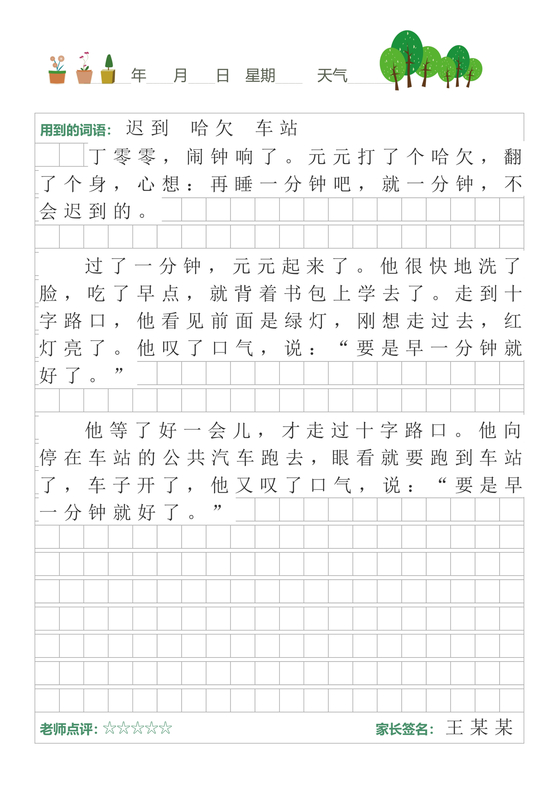 年 月 日 星期 天气
用到的词语： 迟到 哈欠 车站
丁零零，闹钟响了。元元打了个哈欠，翻
了个身，心想：再睡一分钟吧，就一分钟，不
会迟到的。
过了一分钟，元元起来了。他很快地洗了
脸，吃了早点，就背着书包上学去了。走到十
字路口，他看见前面是绿灯，刚想走过去，红
灯亮了。他叹了口气，说：“要是早一分钟就
好了。”
他等了好一会儿，才走过十字路口。他向
停在车站的公共汽车跑去，眼看就要跑到车站
了，车子开了，他又叹了口气，说：“要是早
一分钟就好了。”
老师点评：☆☆☆☆☆ 家长签名： 王某某